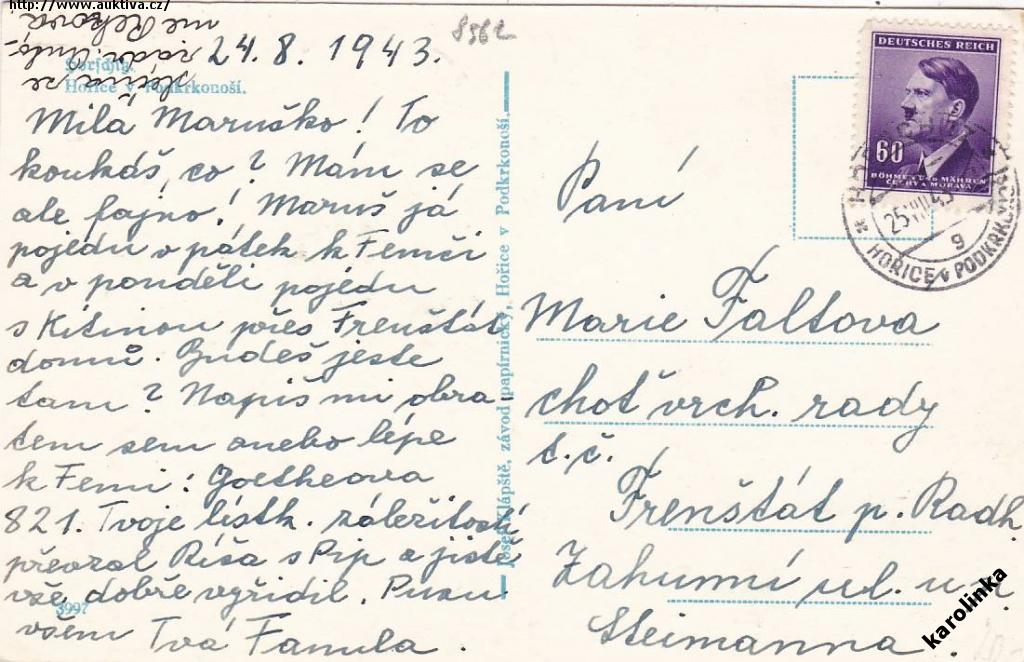 http://www.auktiva.cz/
24.8. 1943.
8562
Hořice v Podkrkonoší.
Milá Maruško! To
koukáš, co? Mám se
ale fajno! Maruš já
pojedu v pátek k Femči
a v pondělí pojedu
s Kitinou přes Frenštát
domů. Budeš jeste
tam? Napiš mi obra
tem sem anebo lépe
k Femi: Goetheova
821. Tvoje lístk. záležitosti
převzal Ríša s Pip a jistě
vše dobře vyřídil. Pusu
všem Tvá Fanula.
3997
Josef Klápště, závod papírnický, Hořice v Podkrkonoší.
DEUTSCHES REICH
60
BÖHMEN UND MÄHREN
ČECHY A MORAVA
25 VIII 43
g
HOŘICE v PODKRKONOŠÍ
Paní
Marie Faltova
choť vrch. rady
t.č.
Frenštát p. Radh.
Zahumní ul. u p.
Steimanna.
karolinka